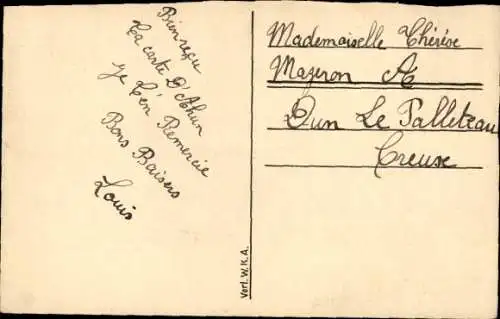 Bien reçu
La carte D'Ahun
Je t'en Remercie
Bons Baisers
Louis
Mademoiselle Thérèse
Mazeron A
Dun Le Palleteau
Creuse
Verl. W.K.A.